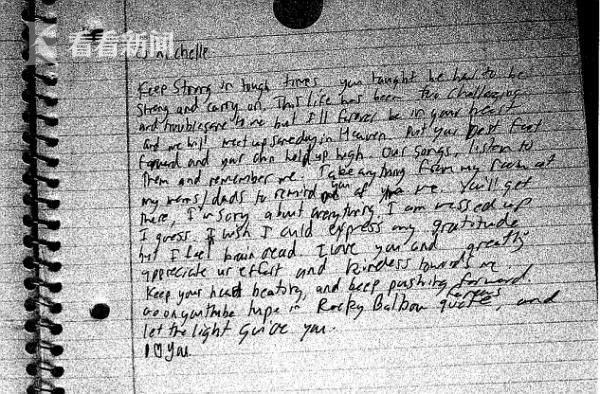 看看新闻
michelle
Keep Strong in tough times you taught me how to be
Strong and carry on. This life has been too challezing
and troublesome to me but I'll forever be in your heart
and we will meet up someday in Heaven. Put your best foot
forward and your chin held up high. Our Songs, listen to
them and remember me. Take anything from my room at
my moms/dads to remind you of me. You'll get
there, I'm sory about everything. I am messed up
I guess. I wish I could express my gratitude
but I feel brain dead. I love you and greatly
appreciate ur effort and kindness towards me
Keep your heart beating, and keep pushing forward.
Go on youtube type in Rocky Balboa quote, and
let the light guide you.
I ♡ You